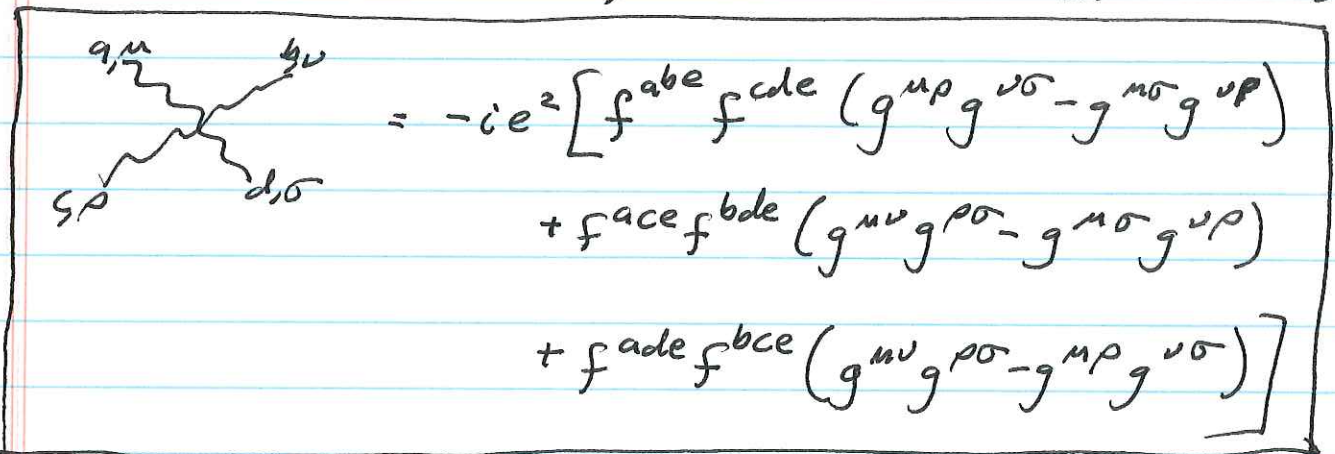 a,μ b,ν
= -ie²[f^{abe} f^{cde} (g^{μρ} g^{νσ} - g^{μσ} g^{νρ})
c,ρ d,σ
+ f^{ace} f^{bde} (g^{μν} g^{ρσ} - g^{μσ} g^{νρ})
+ f^{ade} f^{bce} (g^{μν} g^{ρσ} - g^{μρ} g^{νσ})]